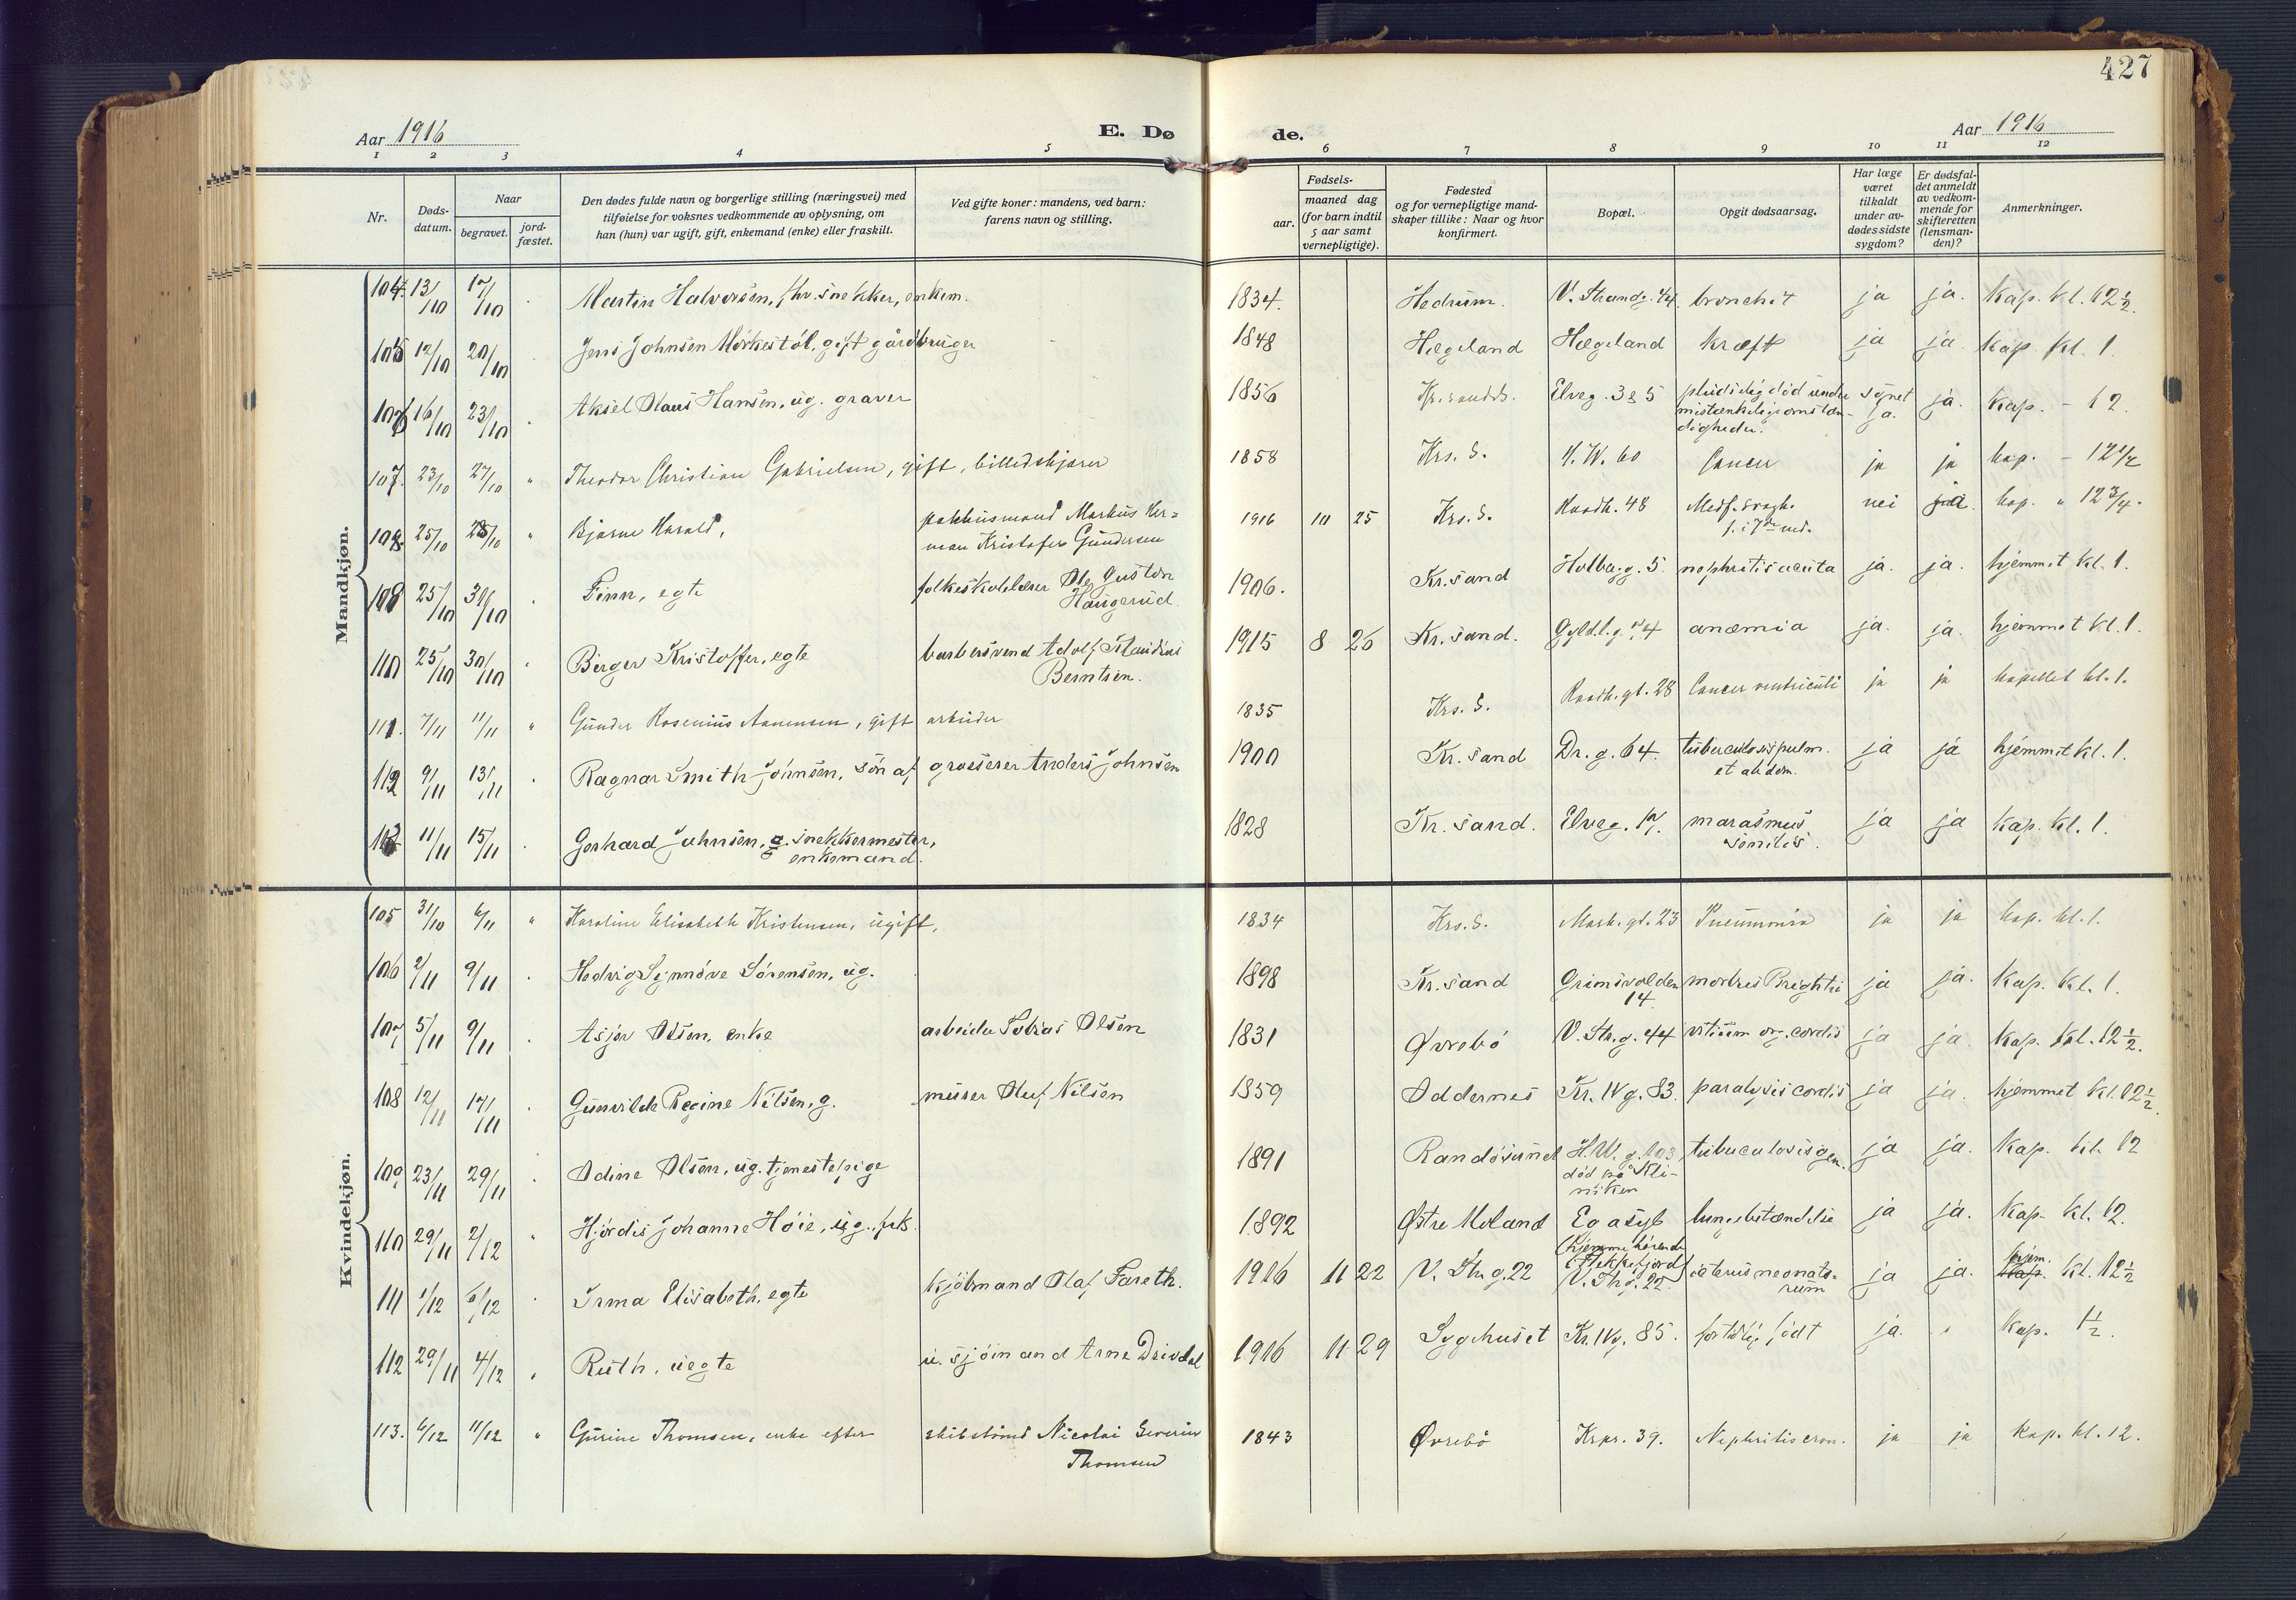 427
Aar 1916 E. Dø de. Aar 1916
1 2 3 4 5 6 7 8 9 10 11 12
Nr.
Døds-
datum.
Naar
begravet.
jord-
fæstet.
Den dødes fulde navn og borgerlige stilling (næringsvei) med
tilføielse for voksnes vedkommende av oplysning, om
han (hun) var ugift, gift, enkemand (enke) eller fraskilt.
Ved gifte koner: mandens, ved barn:
farens navn og stilling.
Fødsels-
aar.
maaned dag
(for barn indtil
5 aar samt
vernepligtige).
Fødested
og for vernepligtige mand-
skaper tillike: Naar og hvor
konfirmert.
Bopæl.
Opgit dødsaarsag.
Har læge
været
tilkaldt
under av-
dødes sidste
sygdom?
Er dødsfal-
det anmeldt
av vedkom-
mende for
skifteretten
(lensman-
den)?
Anmerkninger.
Mandkjøn.
104. 13/10 17/10 Martin Halvorsen, fhv. snekker, enkem. 1834. Hedrum. V. Strandg. 44. bronchit ja ja. Kap. kl. 12½.
105 12/10 20/10 Jens Johnsen Mørkestøl, gift gårdbruger 1848 Hægeland Hægeland kræft ja ja. Kap. kl. 1.
106 16/10 23/10 Aksel Olaus Hansen, ug. graver 1856 Kr.sand S. Elveg. 385 pludselig død under
mistænkelige omstæn-
digheder.
synet
ja. ja. Kap. - 12.
107. 23/10 27/10 " Theodor Christian Gabrielsen, gift, billedskjærer 1858 Krs. S. K. W. 60 Cancer ja ja kap. - 12½
108. 25/10 28/10 " Bjarne Harald, pakhusmand Markus Her=
man Kristofer Gundersen
1916 10 25 Krs. S. Raadh. 48 Medf. svagh.
f. i 7de md.
nei ja. kap. " 12¾.
109 25/10 30/10 Finn, egte folkeskolelærer Ole Gustav
Haugerud.
1906. Kr.sand Holberg.g. 5. nephritis acuta ja. ja. hjemmet kl. 1.
110 25/10 30/10 Birger Kristoffer, egte barbersvend Adolf Klaudius
Berntsen.
1915 8 26 Kr.sand. Gyld.l.g. 74 anæmia ja. ja. hjemmet kl. 1.
111. 7/11 11/11 " Gunder Rosenius Aanensen, gift arbeider 1835 Krs. S. Raadh. gt. 28 Cancer ventriculi ja ja kapellet kl. 1.
112 9/11 13/11 Ragnar Smith Johnsen, søn af grosserer Anders Johnsen 1900 Kr.sand Dr. g. 64. tuberculosis pulm.
et abdom.
ja ja hjemmet kl. 1.
113 11/11 15/11 Gerhard Johnsen, snekkermester,
enkemand.
1828 Kr.sand. Elveg. 17. marasmus
senilis.
ja ja Kap. kl. 1.
Kvindekjøn.
105 31/10 6/11 " Karoline Elisabeth Kristensen, ugift, 1834 Krs. S. Mark. gt. 23 Pneumonia ja ja kap. kl. 1.
106 2/11 9/11 Hedvig Synnøve Sørensen, ug. 1898 Kr.sand Grimsvolden
14.
morbus Brightii ja ja. Kap. kl. 1.
107 5/11 9/11 Asjer Olsen, enke arbeider Tobias Olsen 1831 Øvrebø V. Str.g. 44 vitium org. cordis ja ja. Kap. kl. 12½.
108 12/11 17/11 Gunvilde Regine Nilsen, g. murer Oluf Nilsen 1859 Oddernes Kr. IV g. 83. paralysis cordis ja ja. hjemmet kl. 12½.
109 23/11 29/11 Odine Olsen, ug. tjenestepige 1891 Randøsund H.W. g. 103
død på Kli-
niken
tuberculosis gen. ja ja. Kap. kl. 12
110 29/11 2/12 Hjørdis Johanne Høie, ug. frk. 1892 Østre Moland Eg asyl
(hjemmehørende
i Flekkefjord)
lungebetændelse ja ja. Kap. kl. 12.
111 1/12 6/12 Irma Elisabeth, egte kjøbmand Olaf Fareth. 1916 11 22 V. Str. g. 22 V. Str.g. 22. icterus neonato-
rum
ja ja. hjem. kl. 12½
112 29/11 4/12 Ruth, uegte u. sjømand Arne Drivdal 1916 11 29 Sygehuset Kr. IV g. 85. fortidlig født ja. Kap. 1½.
113. 6/12 11/12 " Gurine Thomsen, enke efter skibstømr Nicolai Severin
Thomsen
1843 Øvrebø Krpr. 39. Nephritis cron. ja ja Kap. kl. 12.